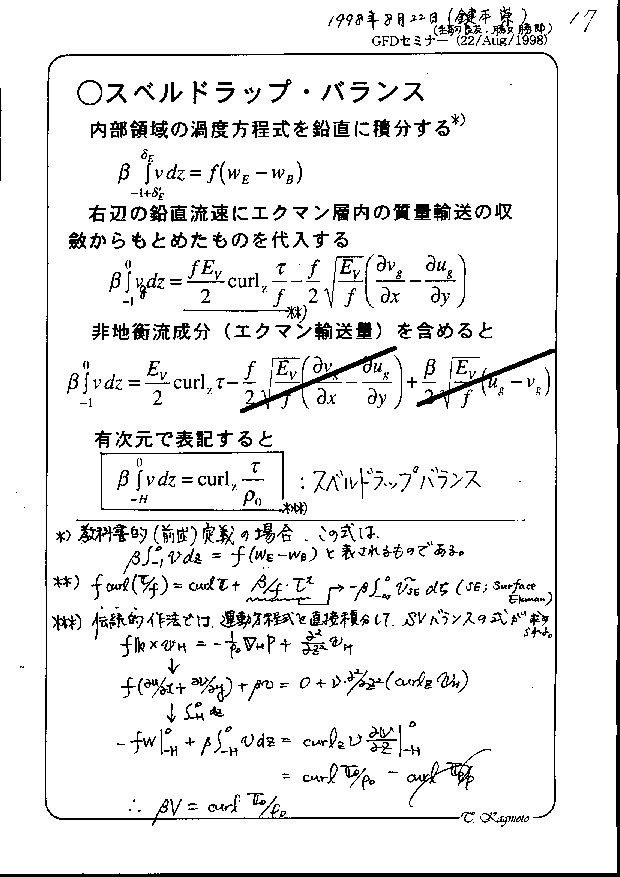 1998年8月22日(鍵本 崇) 17
GFDセミナー (22/Aug/1998)
○スベルドラップ・バランス
内部領域の渦度方程式を鉛直に積分する*)
β ∫_{-1+δ_E}^{δ_E} v dz = f(w_E − w_B)
右辺の鉛直流速にエクマン層内の質量輸送の収
斂からもとめたものを代入する
β ∫_{-1}^{0} v_g dz = fE_V/2 curl_z τ/f − f/2 √(E_V/f) (∂v_g/∂x − ∂u_g/∂y)
**)
非地衡流成分(エクマン輸送量)を含めると
β ∫_{-1}^{0} v dz = E_V/2 curl_z τ − f/2 √(E_V/f) (∂v_g/∂x − ∂u_g/∂y) + β/2 √(E_V/f) (u_g − v_g)
有次元で表記すると
β ∫_{-H}^{0} v dz = curl_z τ/ρ_0 : スベルドラップバランス
***)
*) 教科書的(前出)定義の場合、この式は
β∫_{-1}^{0} v dz = f(w_E − w_B) と表されるものである。
**) f curl(τ/f) = curl τ + β/f · τ^x → −β∫_{-∞}^{0} v_{SE} dζ (SE; Surface Ekman)
***) 伝統的作法では、運動方程式を直接積分して、SVバランスの式が
f𝕜 × v_H = −1/ρ_0 ∇_H P + ∂²/∂z² v_H
↓
f(∂u/∂x + ∂v/∂y) + βv = 0 + ν ∂²/∂z² (curl_z v_H)
↓ ∫_{-H}^{0} dz
−fw|_{-H}^{0} + β∫_{-H}^{0} v dz = curl_z ν ∂v/∂z|_{-H}^{0}
= curl τ_0/ρ_0 − curl τ_B/ρ_0
∴ βV = curl τ_0/ρ_0
T. Kagimoto